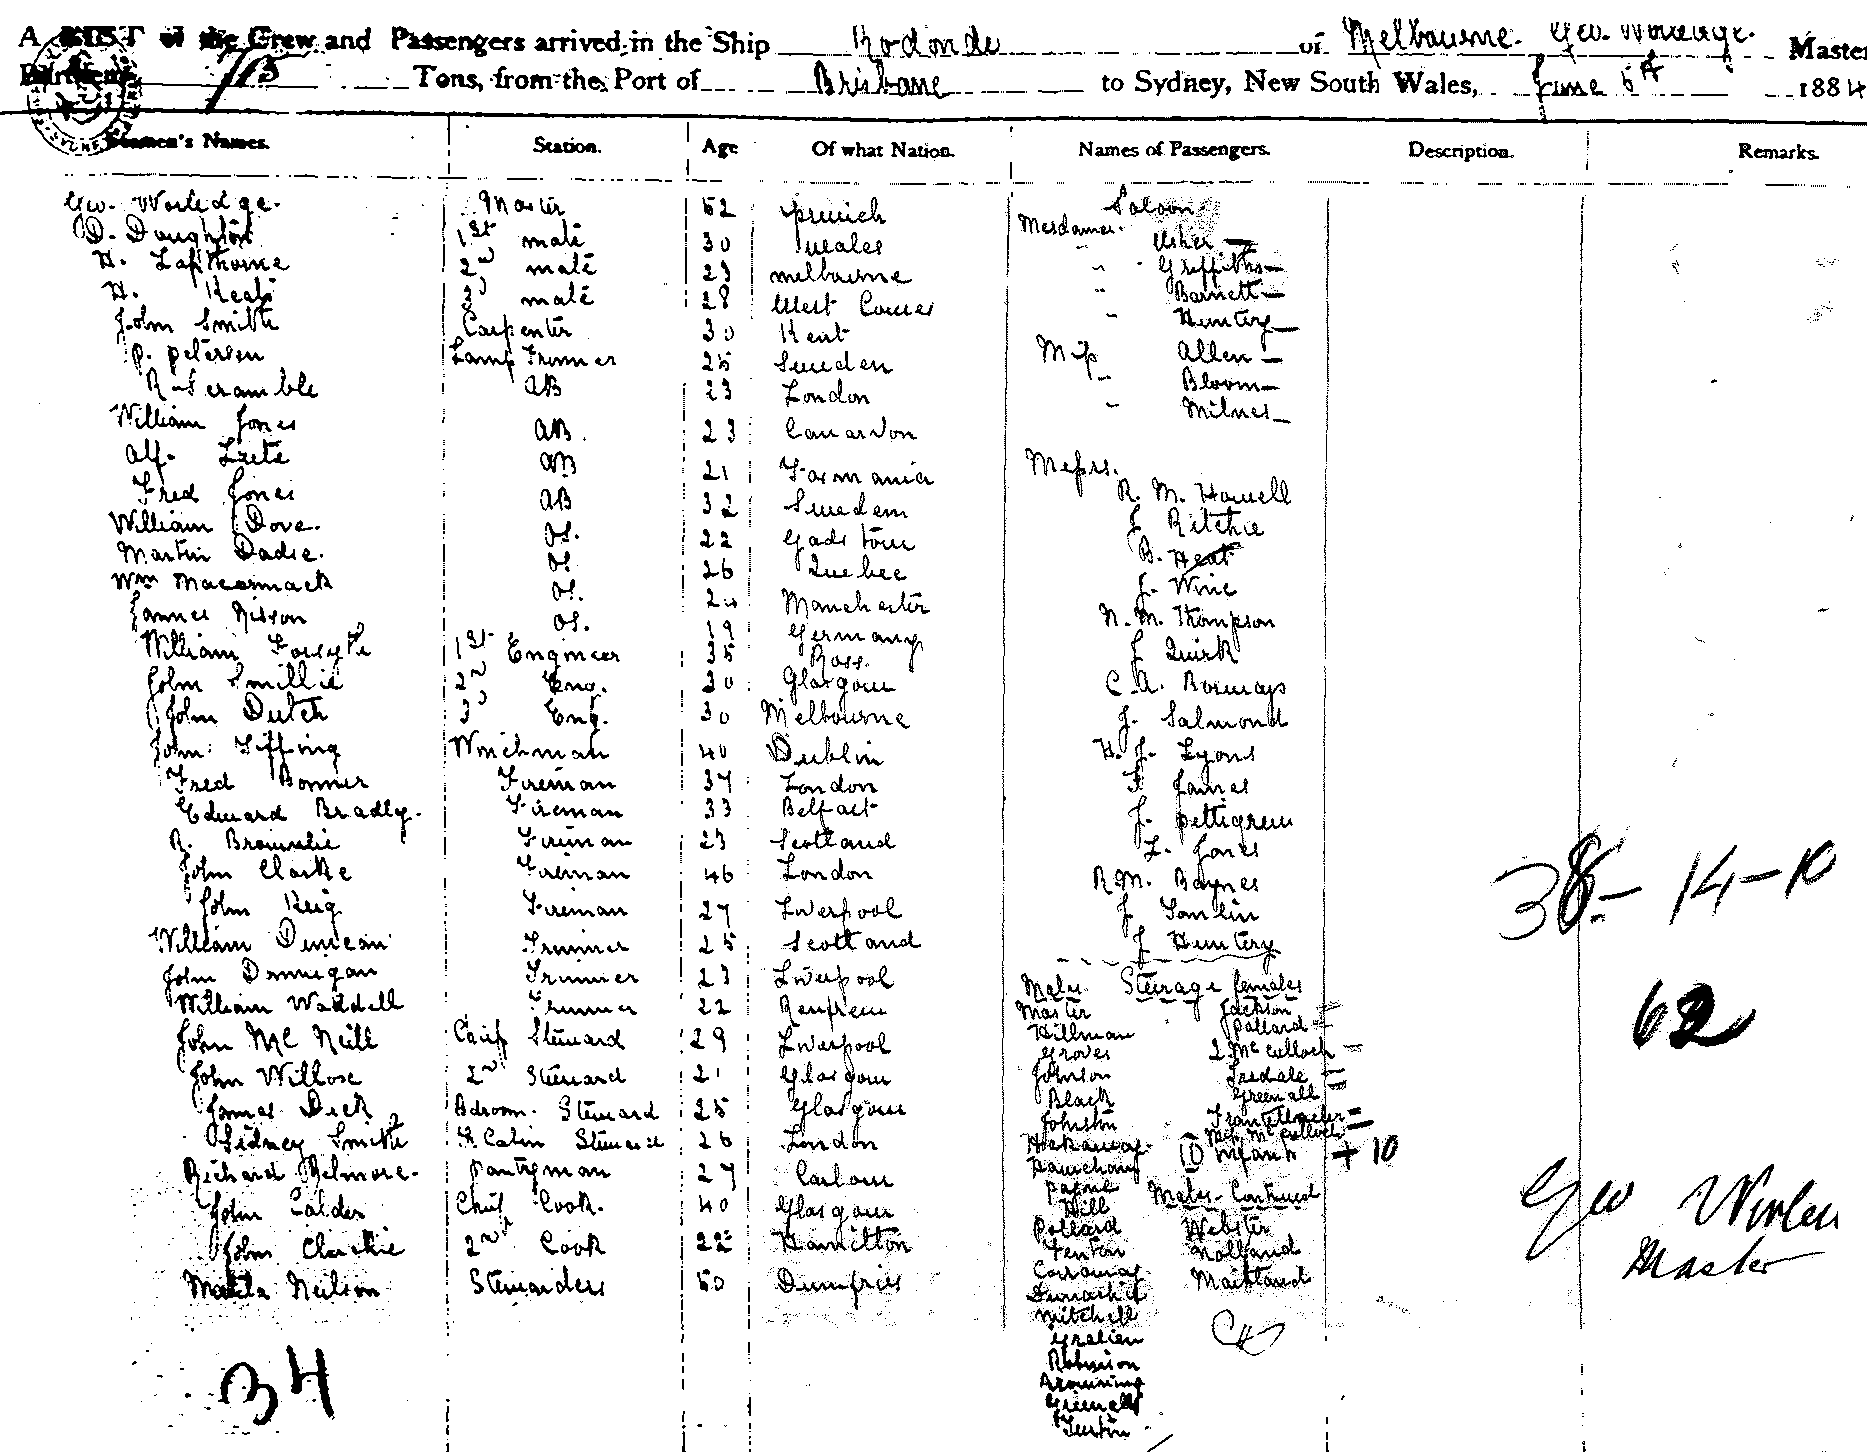 A LIST of the Crew and Passengers arrived in the Ship Rodondo of Melbourne. Geo. Worledge. Master
Burthen 713 Tons, from the Port of Brisbane to Sydney, New South Wales, June 5th 1884
Seamen's Names. Station. Age Of what Nation. Names of Passengers. Description. Remarks.
Geo. Worledge. Master 52 Ipswich Saloon
D. Doughton 1st mate 30 Wales Mesdames Usher
H. Lapthorne 2nd mate 23 Melbourne " Griffiths
H. Keats 3rd mate 28 West Cowes " Barnett
John Smith Carpenter 30 Kent " Huntery
P. Petersen Lamp Trimmer 25 Sweden Miss Allen
R. Scramble AB 23 London " Bloom
William Jones AB. 23 Canarvon " Milnes
Alf. Leete AB 21 Tasmania Messrs.
Fred Jones AB 32 Sweden R. M. Howell
William Dove. OS. 22 J. Ritchie
Martin Dadie. OS 26 Quebec B. Heat
Wm Macormack OS. Manchester J. Wine
James Nisson OS. 19 Germany N. M. Thompson
William Forsyth 1st Engineer 35 Ross. J Quirk
John Smillie 2nd Eng. 30 Glasgow C. A.
John Dutch 3rd Eng. 30 Melbourne J. Salmond
John Tiffing Winchman 40 Dublin H. J. Lyons
Fred Bonner Fireman 37 London F James
Edward Bradly. Fireman 33 Belfast J. Pettigrew
R. Brownlie Fireman 23 Scotland L. Jones
John Clarke Fireman 46 London R M. Baynes
John Keig Fireman 27 Liverpool J Tomlin
William Duncan Trimmer 25 Scotland J Huntery
John Dunnigan Trimmer 23 Liverpool Males Steerage females
William Waddell Trimmer 22 Renfrew Master Jackson
John McNeill Chief Steward 29 Liverpool Hillman Pollard
Groves 2 McCulloch
John Willox 2nd Steward 21 Glasgow Johnson Iredale
James Dick Bdroom. Steward 25 Glasgow Black Greenall
Johnston
Sidney Smith F. Cabin Steward 26 London Miss McCulloch
(1) Infant + 10
Richard Belmore. Pantryman 27 Carlow
Payne Males Continued
John Calder Chief Cook. 40 Glasgow Hill
Pollard Webster
John Clarkie 2nd Cook 22 Hamilton Fenton Holland
Neilson Stewardess 50 Dumfries Maitland
Mitchell
Robinson
Browning
Greenall
38 - 14 - 10
62
Geo Worled
Master
34